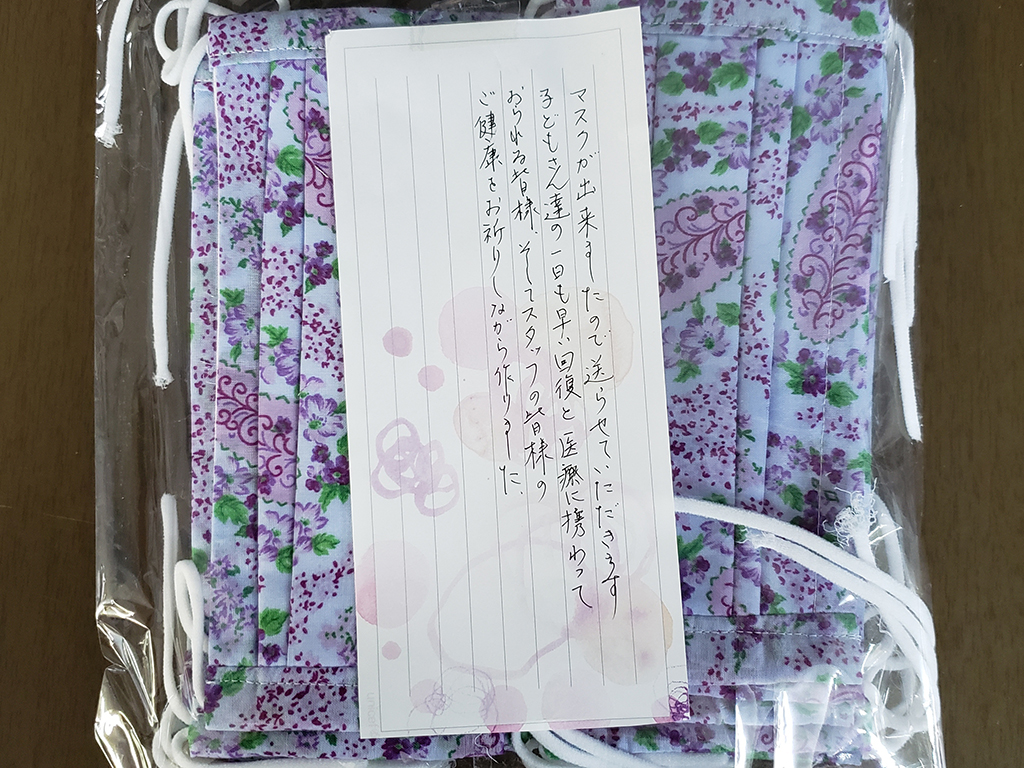 マスクが出来ましたので送らせていただきます
子どもさん達の一日も早い回復と医療に携わって
おられる皆様、そしてスタッフの皆様の
ご健康をお祈りしながら作りました、